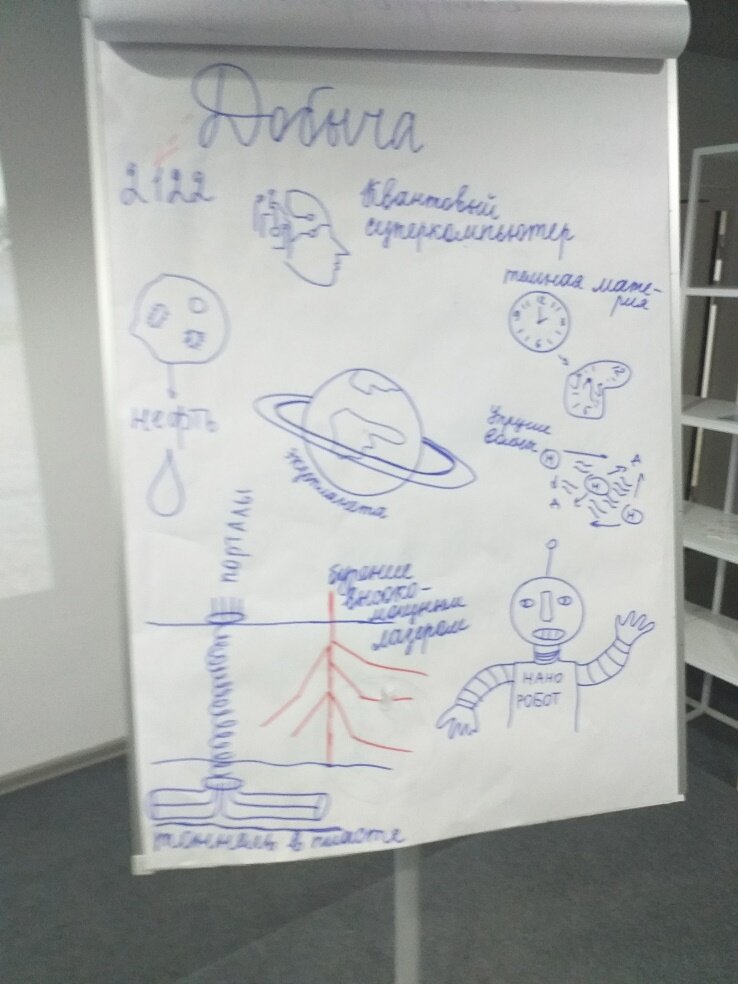 Добыча
2122
Квантовый
суперкомпьютер
темная мате-
рия
нефть
экзопланета
Упругие
порталы
бурение
высоко-
мощным
лазером
НАНО
РОБОТ
тоннель в пласте